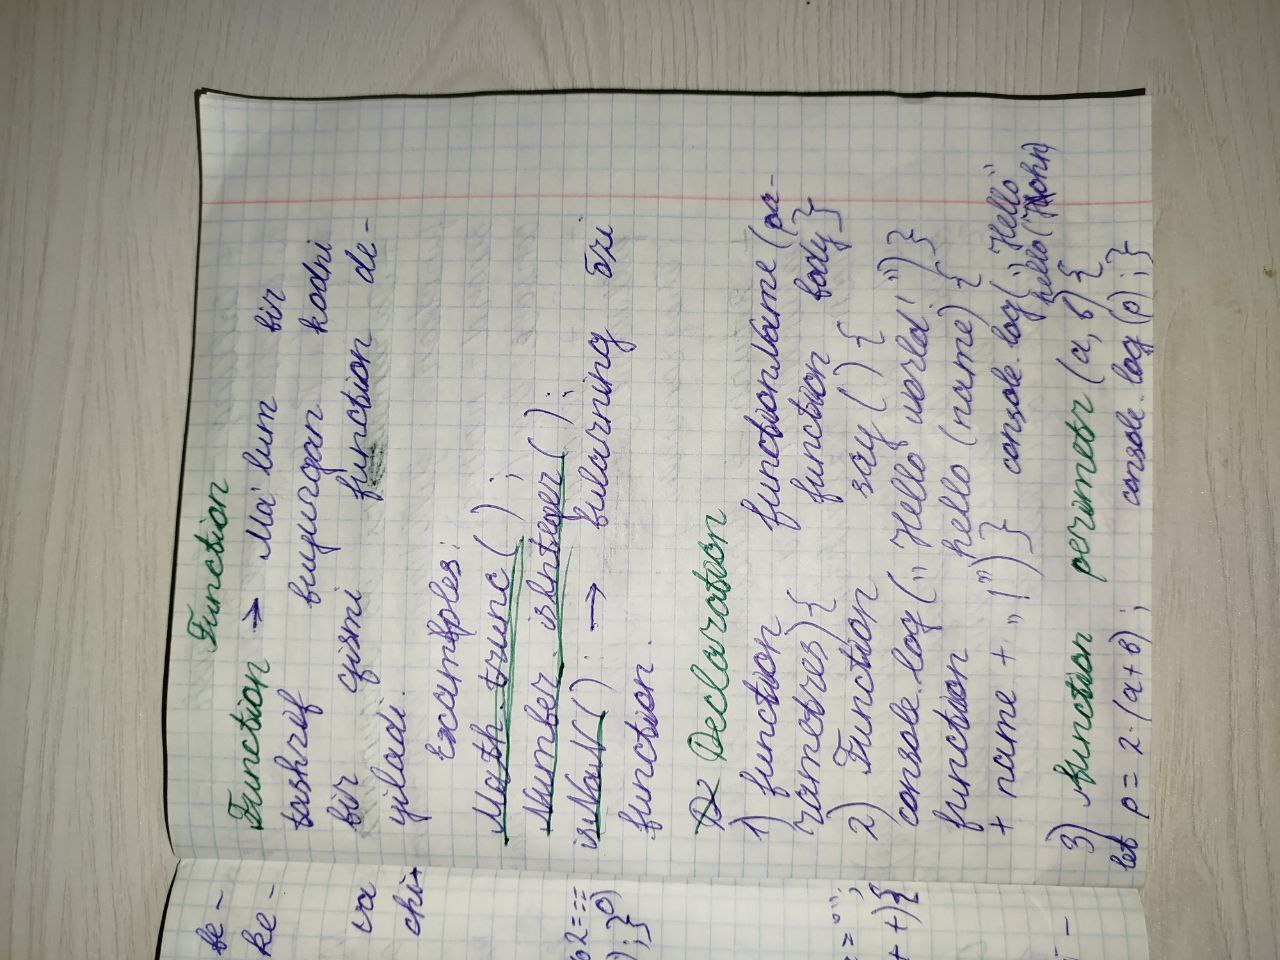 Function
Function → Ma'lum bir
tashrif buyurgan kodni
bir qismi function de-
yiladi.
Examples:
Math.trunc();
Number.isInteger();
isNaN(); → bularning õzi
function.
Declaration
1) function functionName (pa-
rametres) { function body }
2) Function say () {
console.log („Hello world!")}
function hello (name) {
console.log („Hello"
+ name + „!")} hello („John)
3) function perimetr (a, b) {
let p = 2·(a+b); console.log (p);}
be-
ke-
va